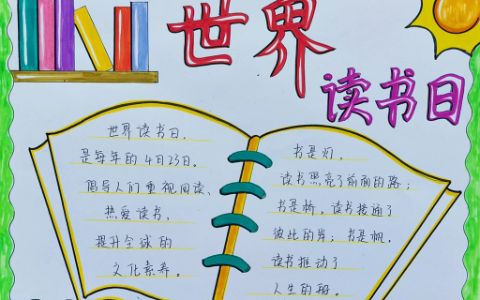 世界
读书日
世界读书日，
是每年的4月23日。
倡导人们重视阅读、
热爱读书，
提升全球的
文化素养。
书是灯，
读书照亮了前面的路；
书是桥，读书接通了
彼此的岸；书是帆，
读书推动了
人生的船。